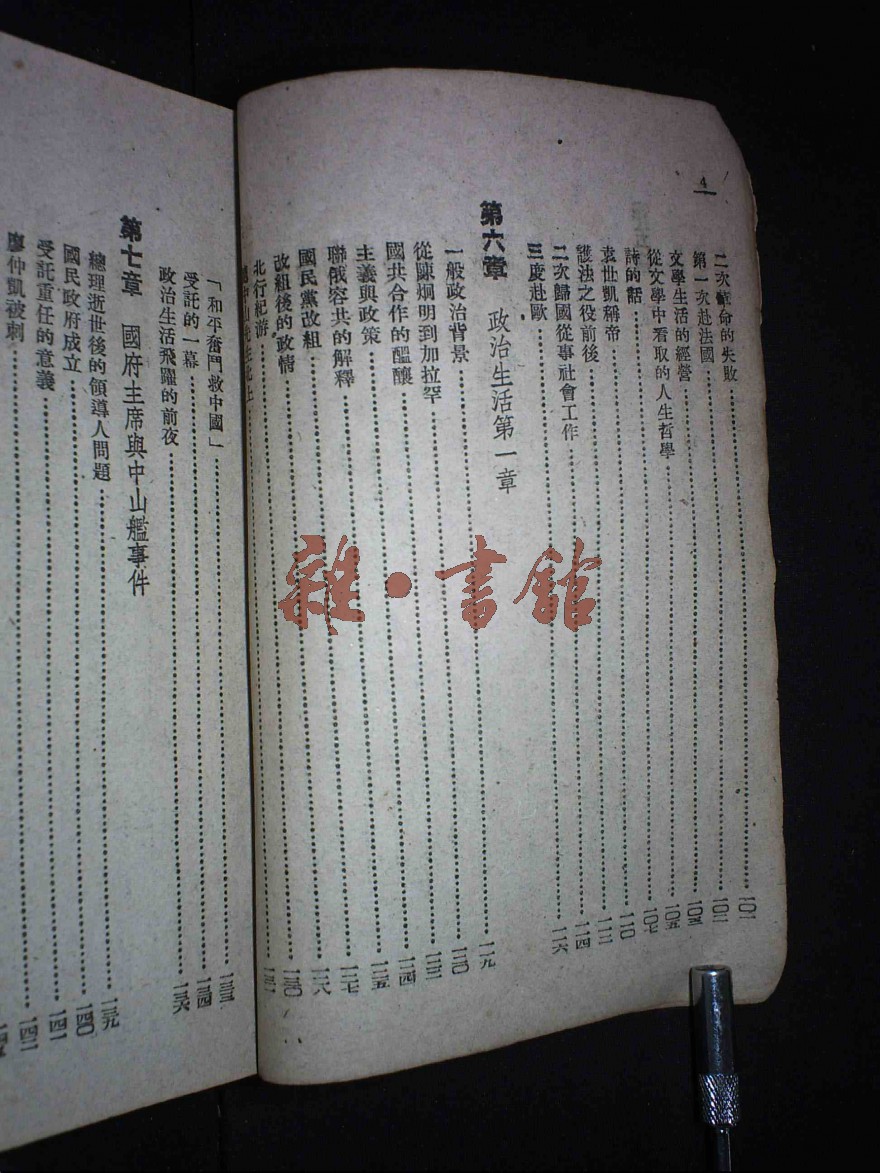 4
二次革命的失敗 一〇一
第一次赴法國 一〇二
文學生活的經營 一〇三
從文學中看取的人生哲學 一〇五
詩的話 一〇七
袁世凱稱帝 一一〇
護法之役前後 一一二
二次歸國從事社會工作 一一四
三度赴歐 一一六
第六章 政治生活第一章
一般政治背景 一一九
從陳炯明到加拉罕 一二〇
國共合作的醞釀 一二二
主義與政策 一二四
聯俄容共的解釋 一二五
國民黨改組 一二七
改組後的政情 一二八
北行紀游 一三〇
中山先生北上 一三一
「和平奮鬥救中國」 一三三
受託的一幕 一三四
政治生活飛躍的前夜 一三六
第七章 國府主席與中山艦事件
總理逝世後的領導人問題 一三九
國民政府成立 一四〇
受託重任的意義 一四一
廖仲凱被刺 一四二
雜·書館